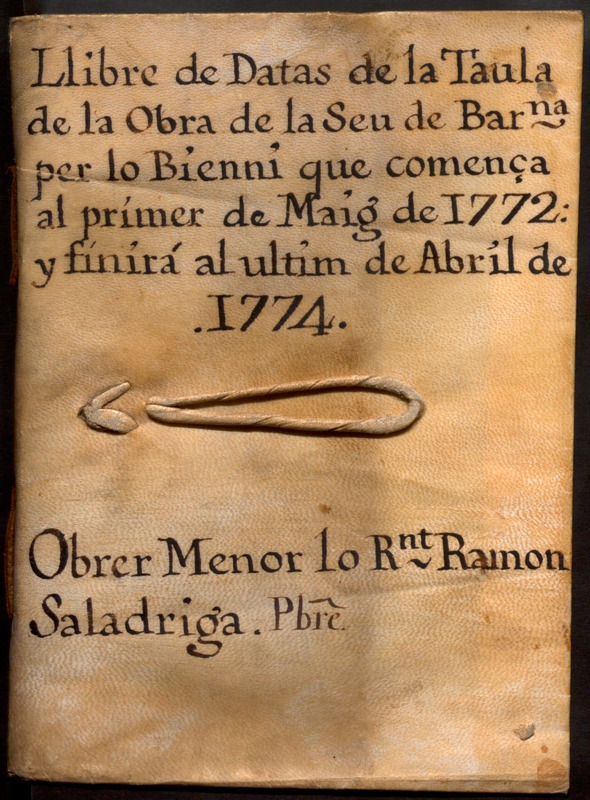 Llibre de Datas de la Taula
de la Obra de la Seu de Barna
per lo Bienni que comença
al primer de Maig de 1772:
y finirá al ultim de Abril de
.1774.
Obrer Menor lo Rnt Ramon
Saladriga. Pbre.